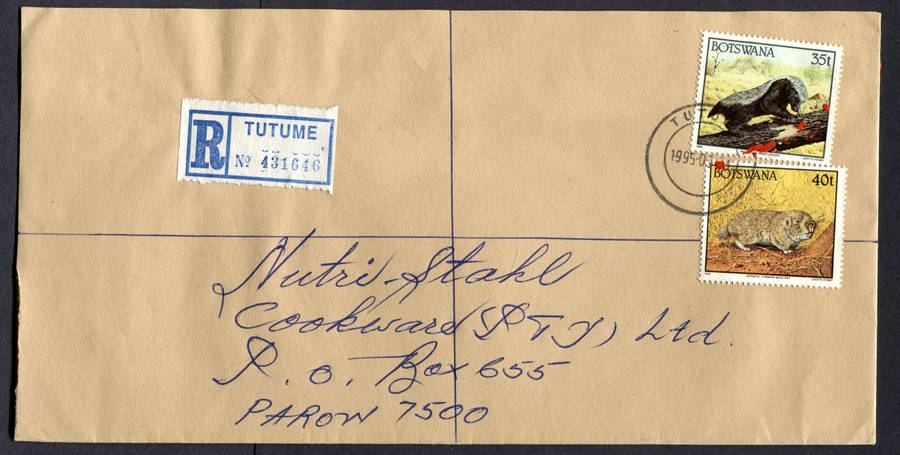 R
TUTUME
Nº 431646
BOTSWANA
35t
BOTSWANA
40t
Nutri-Stahl
Cookware (PTY) Ltd.
P. O. Box 655
PAROW 7500